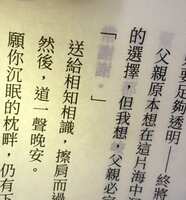 只要足夠透明——終將
父親原本想在這片海中沉
的選擇，但我想，父親必定
。」
送給相知相識，擦肩而過
然後，道一聲晚安。
願你沉眠的枕畔，仍有下